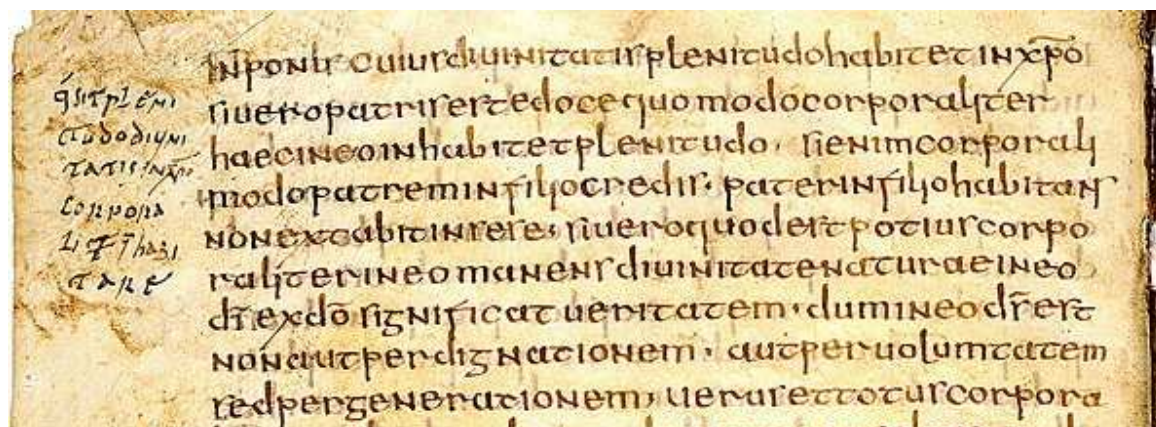 q̇ sit pleni
tudo diuini
tatis in xp̄o
corpora
lit̄ habi
tare
inponis cuius diuinitatis plenitudo habitet in xp̄o
si uero patris est edoce quomodo corporaliter
haec in eo inhabitet plenitudo · si enim corporali
modo patrem in filio credis · pater in filio habitans
non extabit in sese · si uero quod est potius corpo
raliter in eo manens diuinitate naturae in eo
ds̄ ex dō significat ueritatem · dum in eo ds̄ est
non aut per dignationem · aut per uoluntatem
sed per generationem · uerus et totus corpora